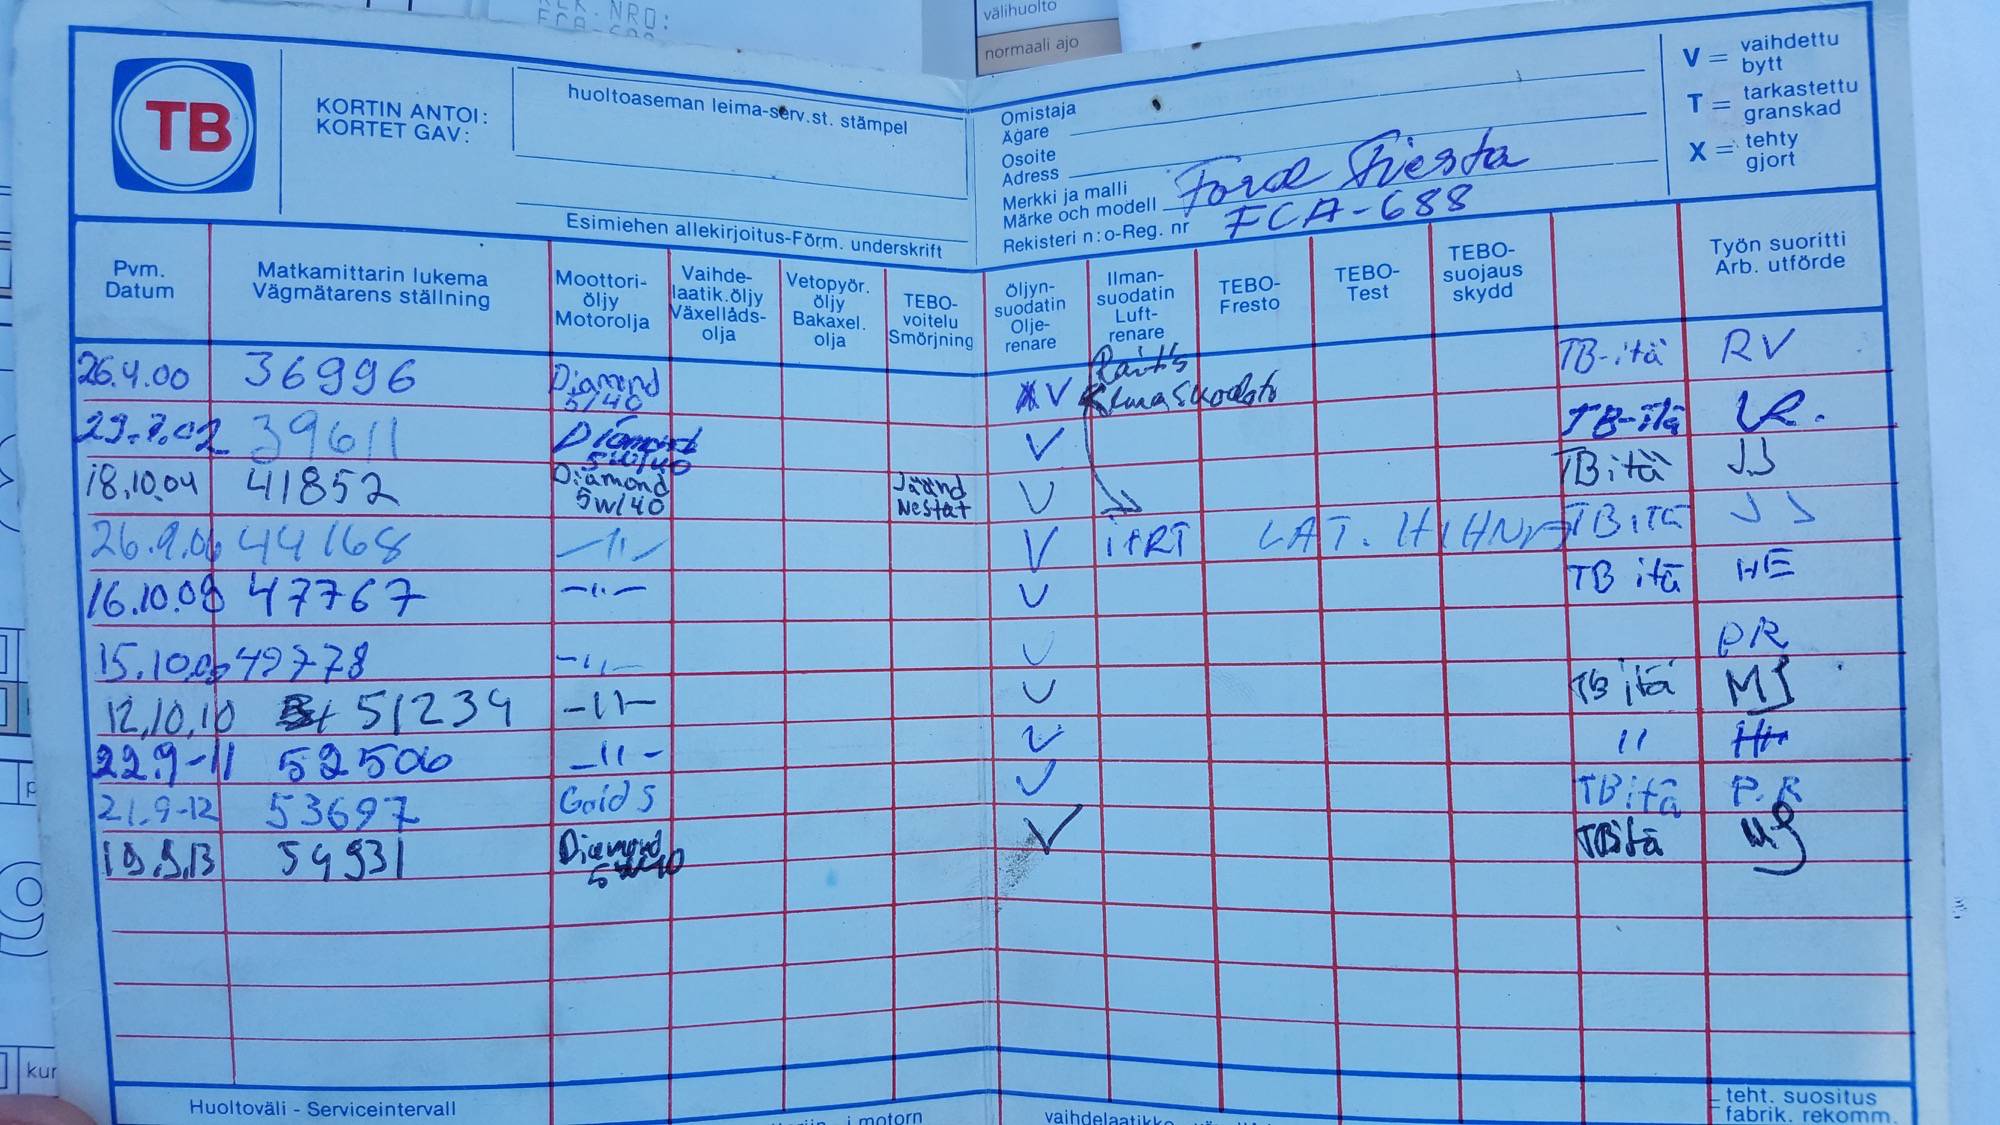 välihuolto
normaali ajo
TB
KORTIN ANTOI:
KORTET GAV:
huoltoaseman leima-serv.st. stämpel
Esimiehen allekirjoitus-Förm. underskrift
Omistaja
Ägare
Osoite
Adress
Merkki ja malli
Märke och modell Ford Fiesta
Rekisteri n:o-Reg. nr FCA-688
V = vaihdettu
bytt
T = tarkastettu
granskad
X = tehty
gjort
Pvm.
Datum
Matkamittarin lukema
Vägmätarens ställning
Moottori-
öljy
Motorolja
Vaihde-
laatik.öljy
Växellåds-
olja
Vetopyör.
öljy
Bakaxel.
olja
TEBO-
voitelu
Smörjning
öljyn-
suodatin
Olje-
renare
Ilman-
suodatin
Luft-
renare
TEBO-
Fresto
TEBO-
Test
TEBO-
suojaus
skydd
Työn suoritti
Arb. utförde
26.4.00 36996 Diamond 5/40 V TB-itä RV
39611 Diamond 5W/40 V TB-itä
18.10.04 41852 Diamond 5W/40 Jäänd Nestat V TB itä JJ
26.9.06 44168 -"- V LAT. TB itä JJ
16.10.08 47767 -"- V TB itä HE
49778 -"- V PR
12.10.10 51234 -"- V TB itä MJ
22.9-11 52506 -"- V "
21.9-12 53697 Gold S V TB itä P.R
54931 Diamond 5W40 V TB itä MJ
Huoltoväli - Serviceintervall
i motorn
vaihdelaatikko
teht. suositus
fabrik. rekomm.
kur